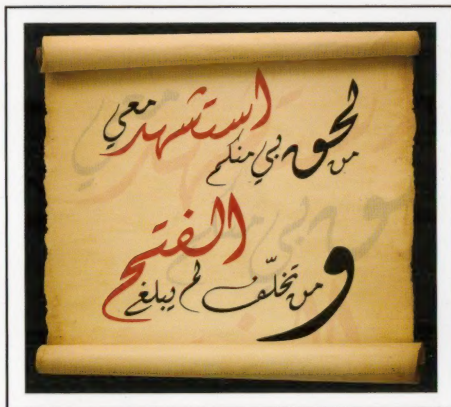 من لحق بي منكم استشهد معي
ومن تخلّف لم يبلغ الفتح